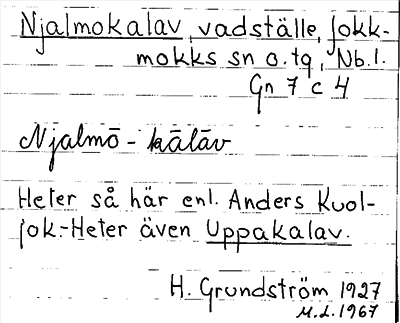 Njalmokalav, vadställe, Jokk-
mokks sn o. tg, Nb. l.
Gn 7 c 4
Njalmō - kālāv
Heter så här enl. Anders Kuol-
jok.- Heter även Uppakalav.
H. Grundström 1927
M.L. 1967